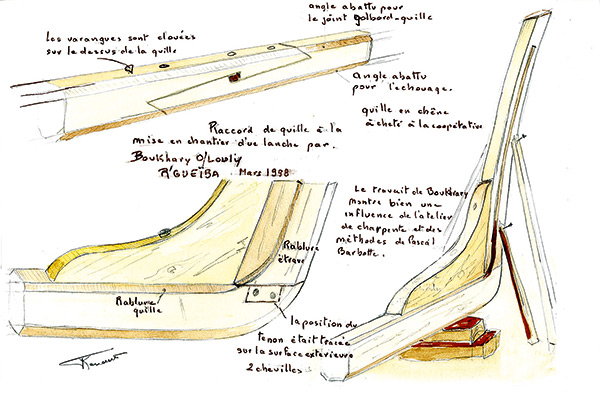 angle abattu pour
le joint galbord-quille
Les varangues sont clouées
sur le dessus de la quille
angle abattu
pour l'echouage.
quille en chêne
achetée à la coopérative
Raccord de quille à la
mise en chantier d'ue lanche par.
Boukhary O/Louly
R'GUEÏBA Mars 1998
Le travail de Boukhary
montre bien une
influence de l'atelier
de charpente et des
méthodes de Pascal
Barbotte.
Rablure
étrave
Rablure
quille
la position du
tenon était tracée
sur la surface extérieure
2 chevilles